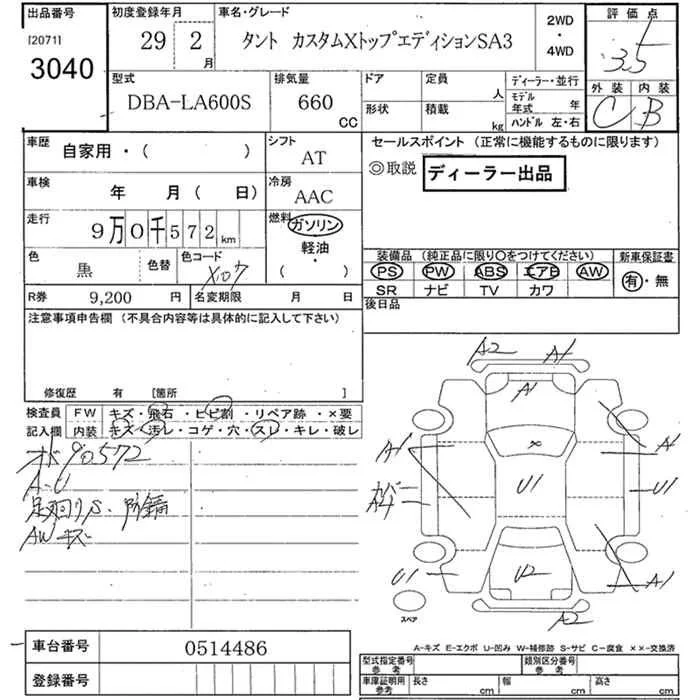 出品番号 初度登録年月 車名・グレード 2WD ・ 4WD 評価点
[2071] 29 2 月 タント カスタムXトップエディションSA3 3.5
3040
型式 排気量 ドア 定員 人 ディーラー・並行 外装 内装
DBA-LA600S 660 CC 形状 積載 kg モデル年式 年 C B
ハンドル 左・右
車歴 自家用・( ) シフト AT セールスポイント (正常に機能するものに限ります)
◎取説 ディーラー出品
車検 年 月( 日) 冷房 AAC
走行 9万0千572km 燃料 ガソリン
軽油
・
( )
色 黒 色替 色コード X07 装備品 (純正品に限り○をつけてください) 新車保証書
PS PW ABS エアB AW 有・無
SR ナビ TV カワ
R券 9,200 円 名変期限 月 日 後日品
注意事項申告欄 (不具合内容等は具体的に記入して下さい)
修復歴 有 [箇所 ]
検査員 FW キズ・飛石・ヒビ割・リペア跡・×要
記入欄 内装 キズ・汚レ・コゲ・穴・スレ・キレ・破レ
オド90572
A-U
足廻りS・下錆
AWキズ
A2 A1
A1
×
A1 A1
カバーA4 U1 U1
U1 U2 A1
スペア A2
A-キズ E-エクボ U-凹み W-補修跡 S-サビ C-腐食 ××-交換済
車台番号 0514486
登録番号
型式指定番号 参考 類別区分番号 参考
車庫証明用 参考 長さ cm 幅 cm 高さ cm